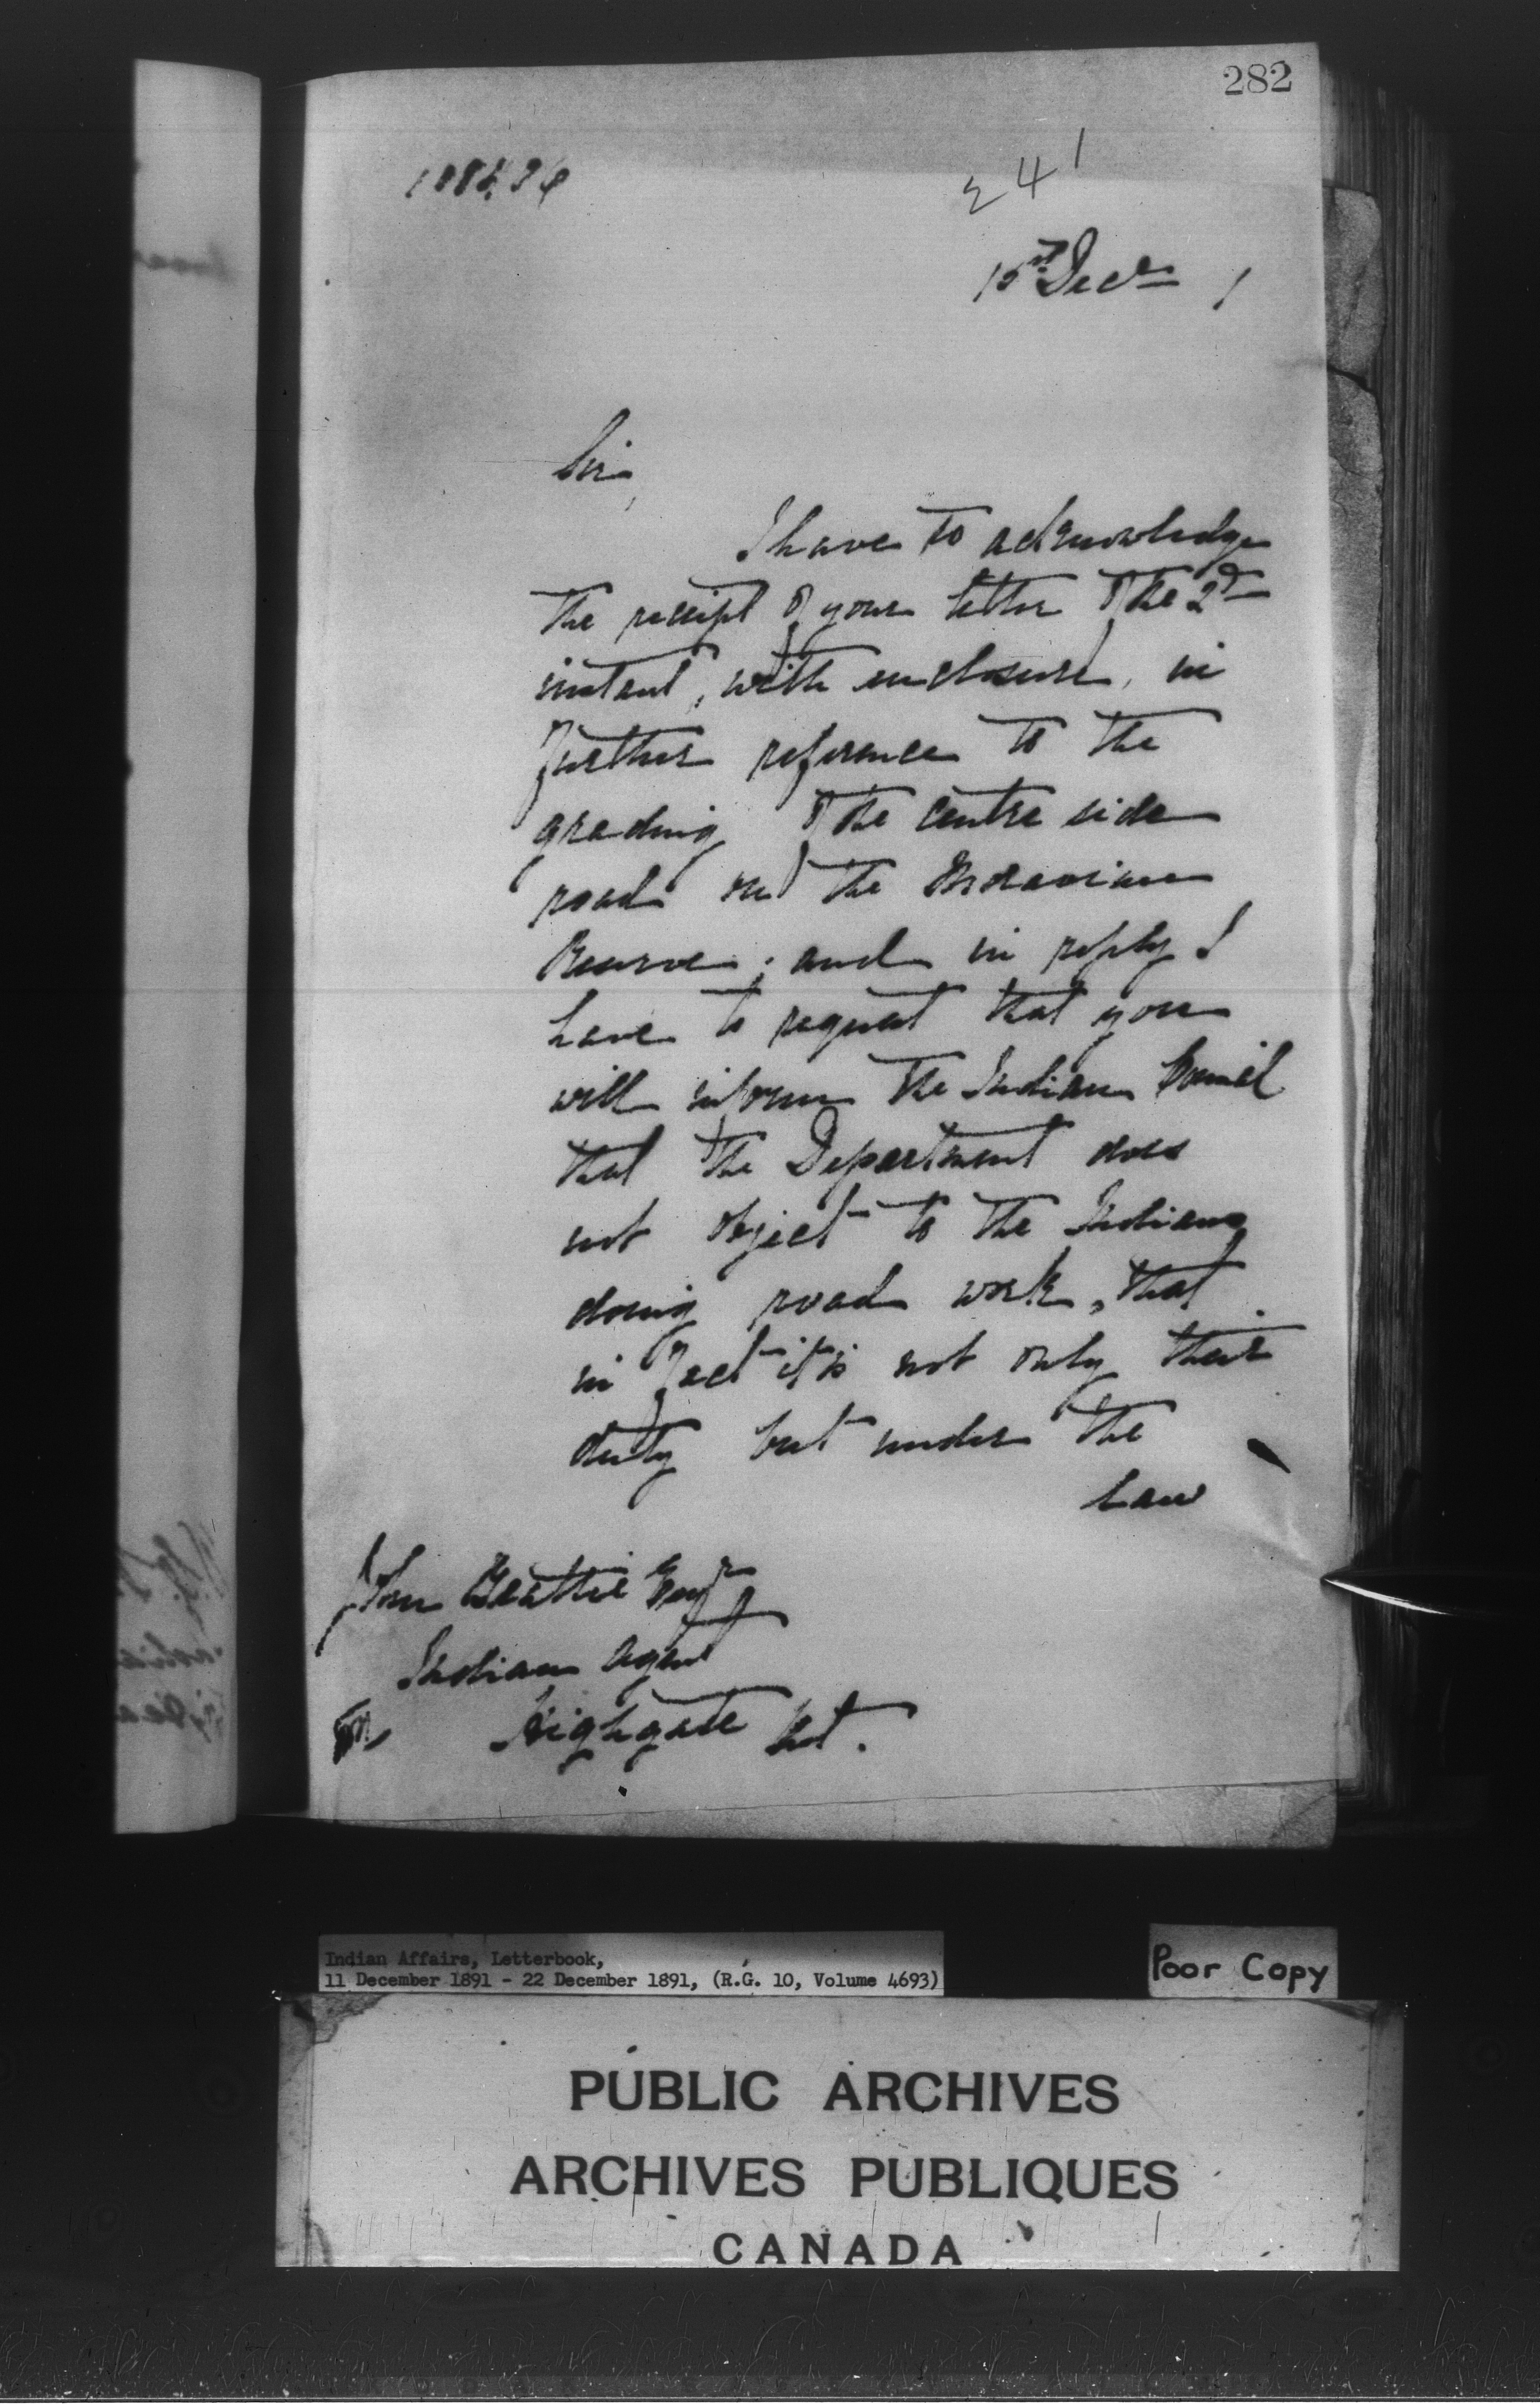 282
241
15th Decr 1
Sir,
I have to acknowledge
the receipt of your letter of the 2d
instant, with enclosure, in
further reference to the
grading of the centre side
road on the Moravian
Reserve; and in reply I
have to request that you
will inform the Indian Council
that the Department does
not object to the Indians
doing road work, that
in fact it is not only their
duty but under the
law
John Beattie Esqr
Indian Agent
Highgate Ont.
Indian Affairs, Letterbook,
11 December 1891 - 22 December 1891, (R.G. 10, Volume 4693)
Poor Copy
PUBLIC ARCHIVES
ARCHIVES PUBLIQUES
CANADA